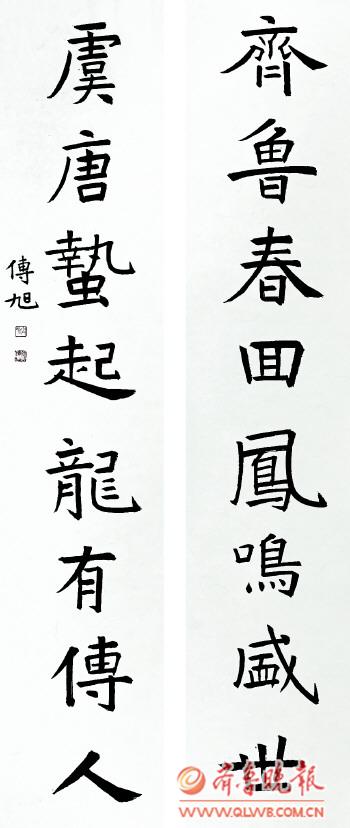 齊魯春回鳳鳴盛世
虞唐蟄起龍有傳人
傅旭
齐鲁晚报
WWW.QLWB.COM.CN